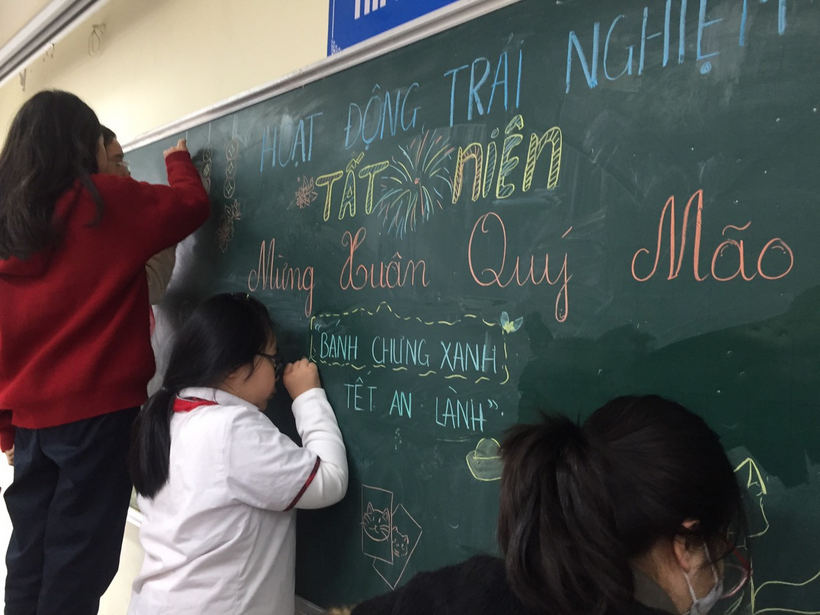 HOẠT ĐỘNG TRẢI NGHIỆM
TẤT NIÊN
Mừng Xuân Quý Mão
"BÁNH CHƯNG XANH
TẾT AN LÀNH"